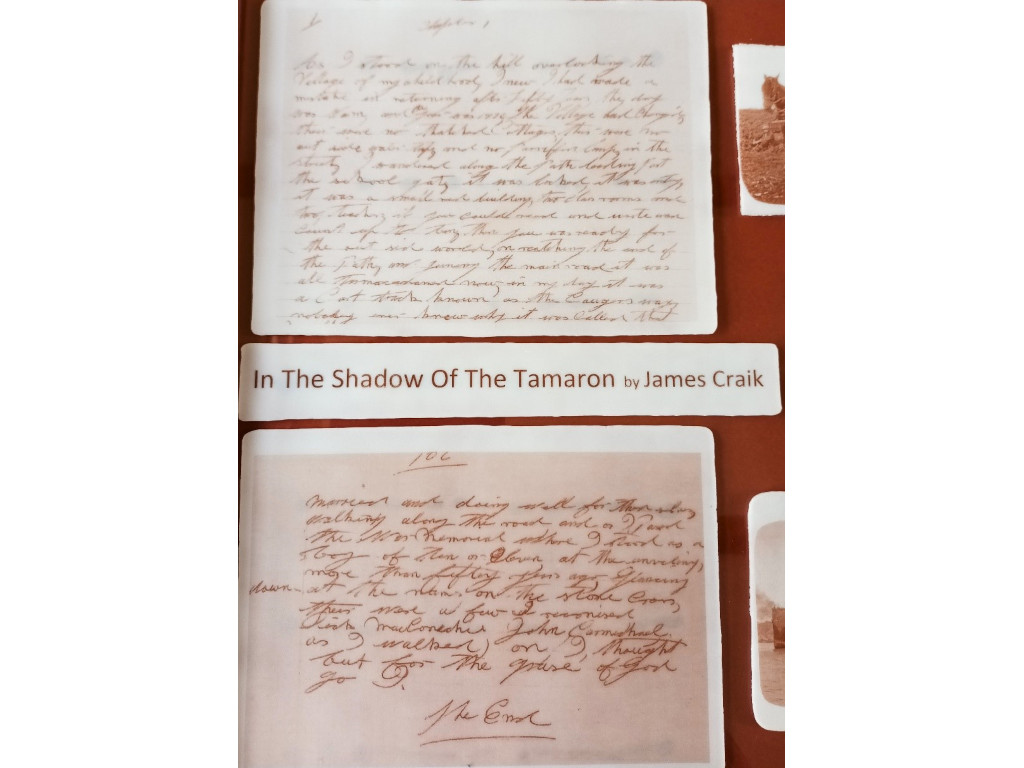 Chapter 1
As I stood on the hill overlooking the
Village of my childhood, I new I had made a
mistake in returning after fifty years, the day
was warm, and the Village had
there were no thatched there were no
out side and no parrafin lamps in the
streets, I wandered along the path leading past
the school gate, it was locked, it was empty,
it was a small building, two class rooms and
two teachers, if you could read and write and
count up to then you was ready for
the out sid world, on reatching the end of
the Path, and joining the main road it was
all now, in my day it was
a Cart track known as the way,
nobody ever knew why it was Called that
In The Shadow Of The Tamaron by James Craik
106
married and doing well for
walking along the road and I Past
the War Memorial where I stood as a
Boy of ten or Eleven at the unveiling,
more than fifty years ago, Glancing
down at the names on the stone Cross,
their were a few I reconised
John Carmichael.
as I walked on I thought
but for the grase of God
go I.
The End